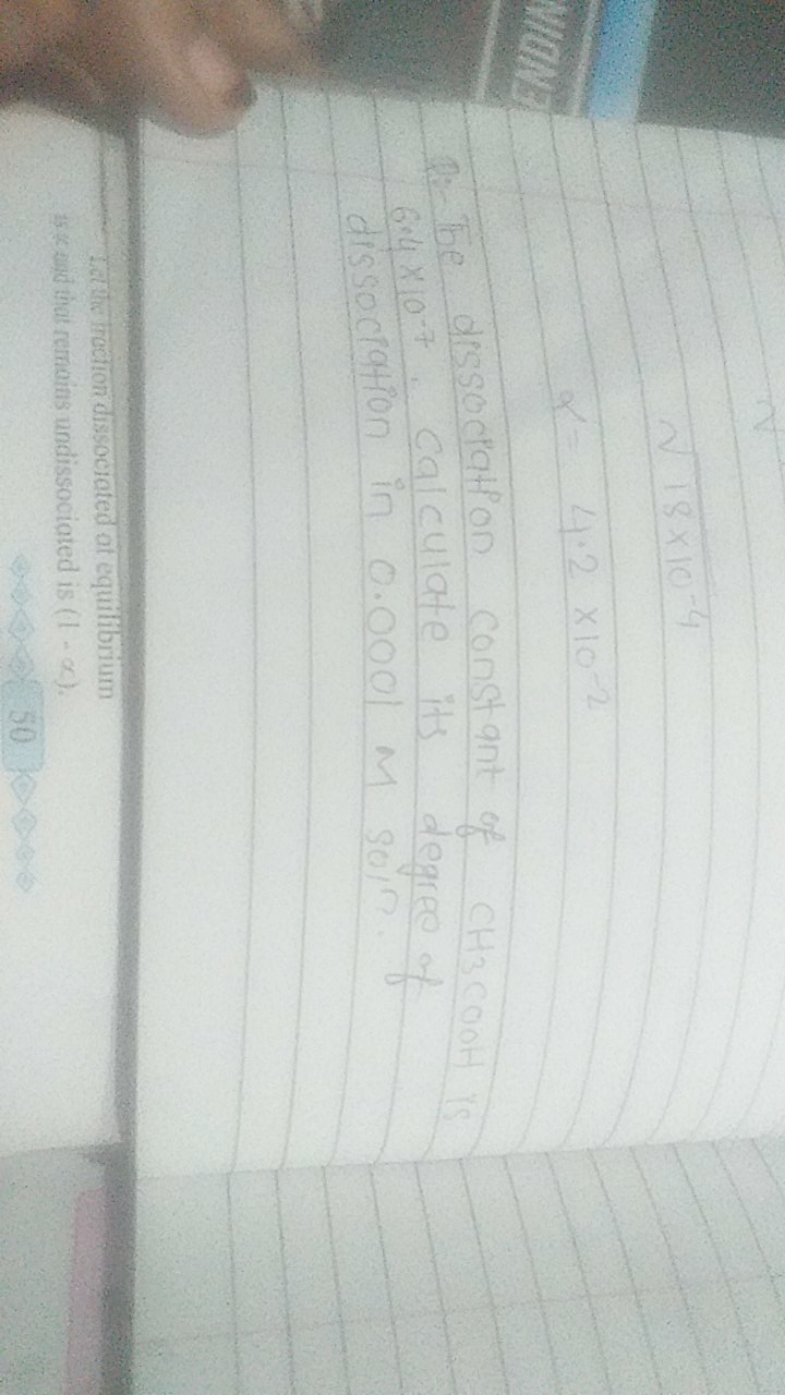 ENDIN
√18×10⁻⁴
α = 4.2 ×10⁻²
The dissociation constant of CH3COOH is
6.4×10⁻⁷. Calculate its degree of
dissociation in 0.0001 M soln.
Let the fraction dissociated at equilibrium
is ∝ and that remains undissociated is (1 - ∝).
50